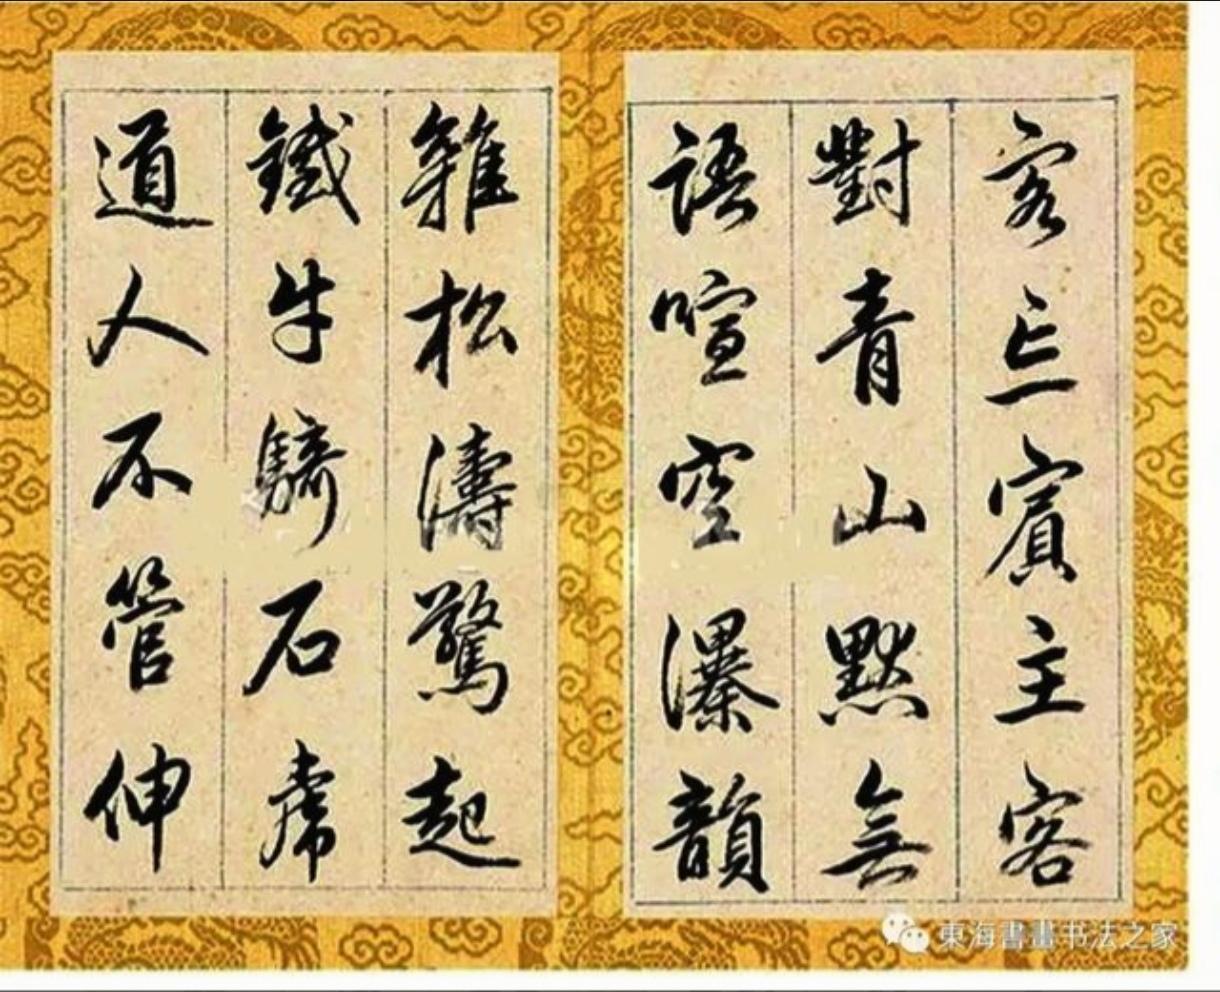 客忘賓主客
對青山默無
語喧空瀑韻
雜松濤驚起
鐵牛騎石虎
道人不管伸
東海書畫书法之家